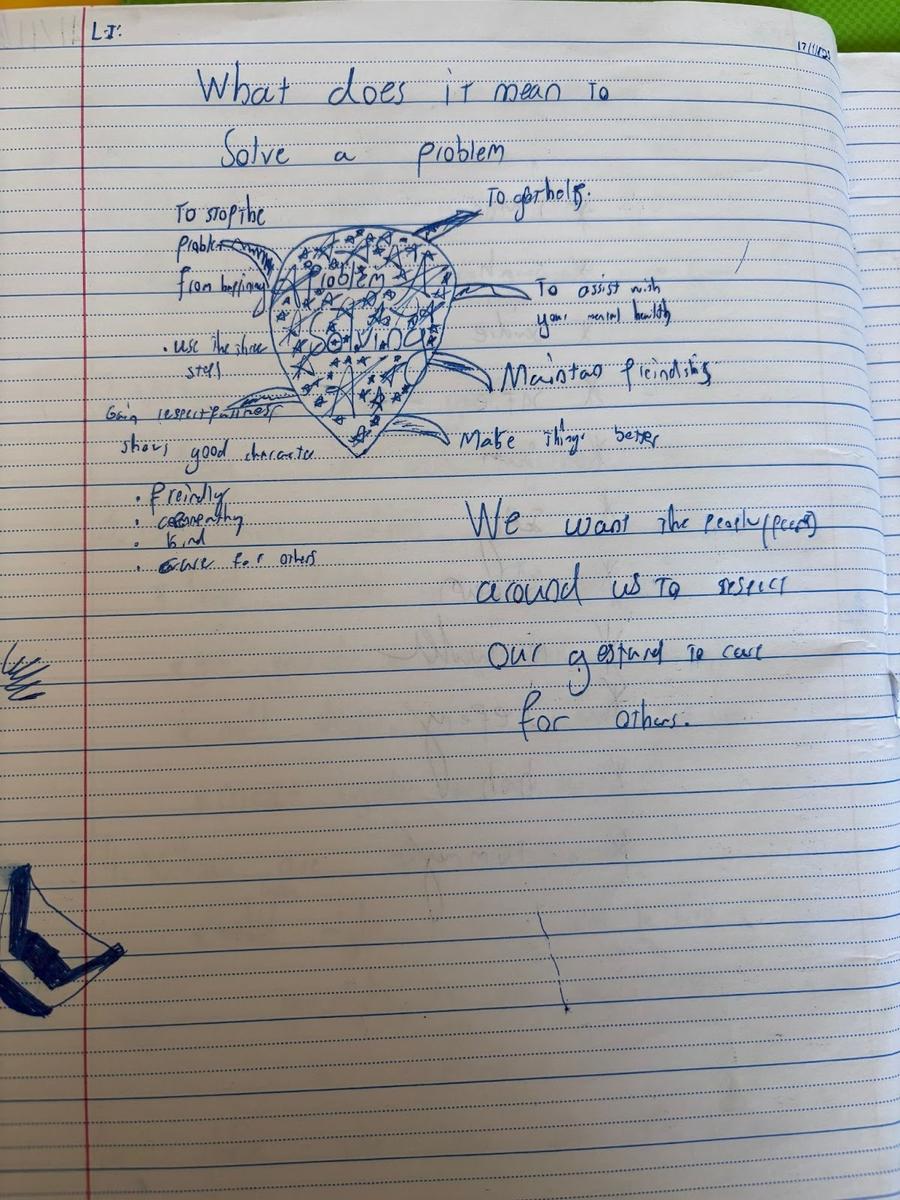 L.I:
What does it mean to
Solve a problem
To stop the
problem
from
• use the three
step
Gain respectfullness
shows good character
• freindly
•
• kind
• care for others
Problem
Solving
To get help.
To assist with
your mental health
Maintan freindships
Make things better
We want the people (peers)
around us to respect
Our to care
for others.